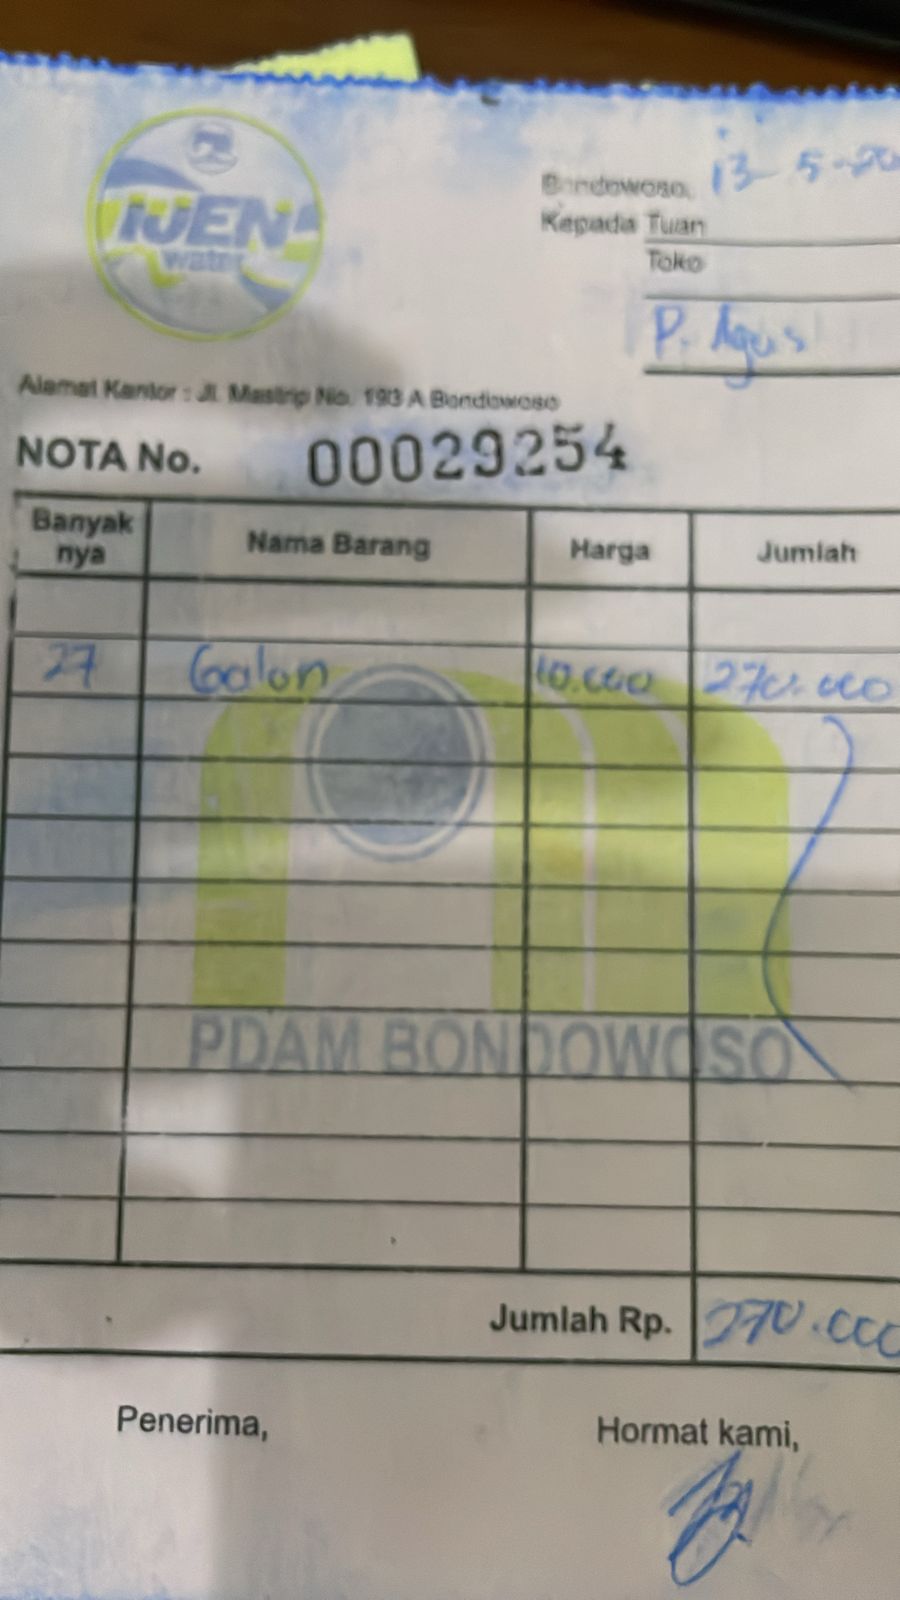 IJEN
water
Bondowoso, 13-5-20
Kepada Tuan
Toko
P. Agus
Alamat Kantor : Jl. Mastrip No. 193 A Bondowoso
NOTA No. 00029254
Banyak nya Nama Barang Harga Jumlah
27 Galon 10.000 270.000
PDAM BONDOWOSO
Jumlah Rp. 270.000
Penerima, Hormat kami,